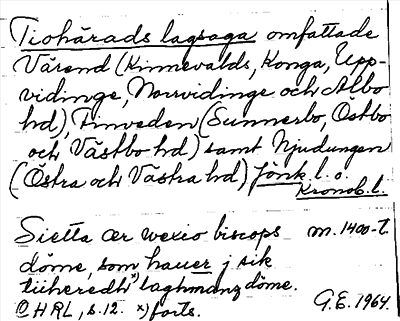 Tiohärads lagsaga omfattade
Värend (Kinnevalds, Konga, Upp-
vidinge, Norrvidinge och Albo
hd), Finveden (Sunnerbo, Östbo
och Västbo hd) samt Njudungen
(Östra och Västra hd) Jönk. l. o.
Kronob. l.
Sietta ær wexio biscops m. 1400-t.
döme, som hauer j sik
tiiheredh x) laghmanzdöme.
@ HRL, s. 12. x) forts. G.E. 1964.